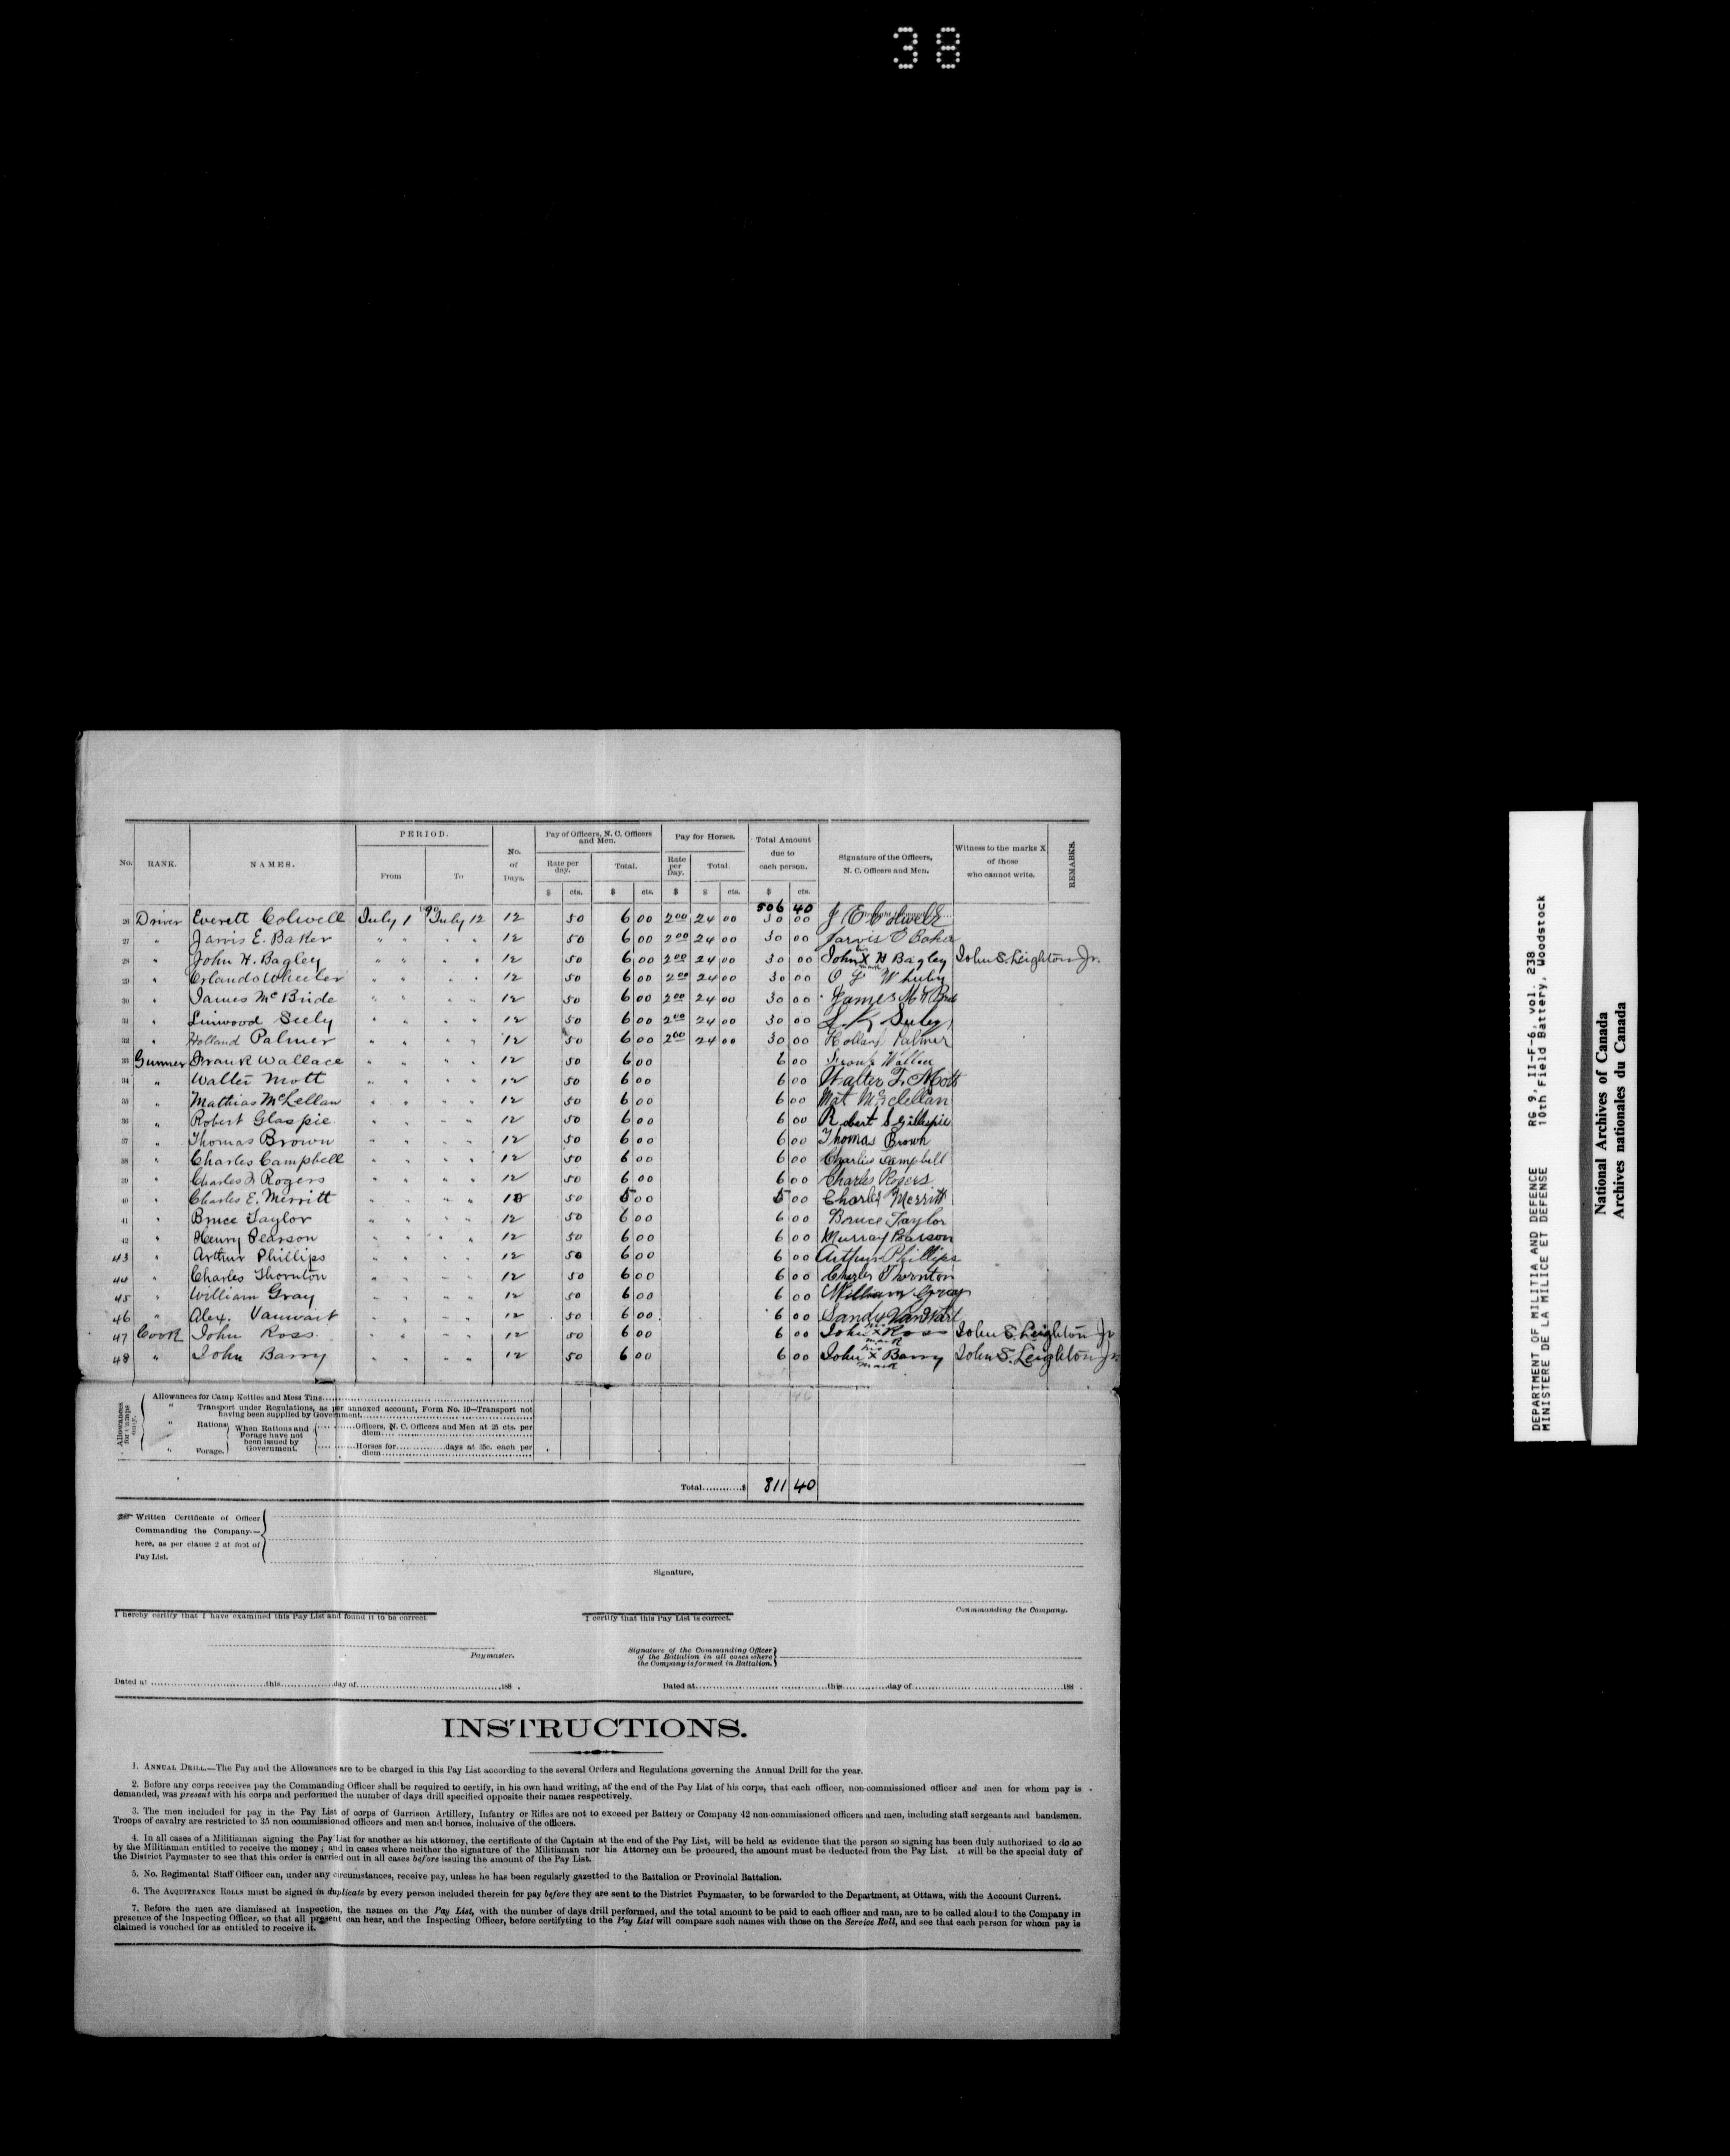 38
PERIOD.
Pay of Officers, N. C. Officers and Men.
Pay for Horses.
Total Amount due to each person.
No. RANK. NAMES. From To No. of Days. Rate per day. Total. Rate per Day. Total. Signature of the Officers, N. C. Officers and Men. Witness to the marks X of those who cannot write. REMARKS.
$ cts. $ cts. $ $ cts. $ cts.
506 40
26 Driver Everett Colwell July 1 July 12 12 50 6 00 2 00 24 00 30 00 J E Colwell
27 " Jarvis E. Baker " " " " 12 50 6 00 2 00 24 00 30 00 Jarvis E Baker
28 " John H. Bagley " " " " 12 50 6 00 2 00 24 00 30 00 John his X mark H Bagley John S. Leighton Jr.
29 " Orlando Wheeler " " " " 12 50 6 00 2 00 24 00 30 00 O
30 " James McBride " " " " 12 50 6 00 2 00 24 00 30 00 James
31 " Linwood Seely " " " " 12 50 6 00 2 00 24 00 30 00 L. K Seely
32 " Holland Palmer " " " " 12 50 6 00 2 00 24 00 30 00 Holland Palmer
33 Gunner Frank Wallace " " " " 12 50 6 00 6 00 Frank Wallace
34 " Walter Mott " " " " 12 50 6 00 6 00 Walter F. Mott
35 " Mathias McLellan " " " " 12 50 6 00 6 00 Mat McClellan
36 " Robert Glaspie " " " " 12 50 6 00 6 00 Robert S Gillespie
37 " Thomas Brown " " " " 12 50 6 00 6 00 Thomas Brown
38 " Charles Campbell " " " " 12 50 6 00 6 00 Charlie Campbell
39 " Charles F Rogers " " " " 12 50 6 00 6 00 Charles Rogers
40 " Charles E. Merritt " " " " 10 50 5 00 5 00 Charles Merritt
41 " Bruce Taylor " " " " 12 50 6 00 6 00 Bruce Taylor
42 " Henry Pearson " " " " 12 50 6 00 6 00 Murray Pearson
43 " Arthur Phillips " " " " 12 50 6 00 6 00 Arthur Phillips
44 " Charles Thornton " " " " 12 50 6 00 6 00 Charles Thornton
45 " William Gray " " " " 12 50 6 00 6 00 William Gray
46 " Alex. Vanwart " " " " 12 50 6 00 6 00 Sandy VanWart
47 Cook John Ross " " " " 12 50 6 00 6 00 John his X mark Ross John S. Leighton Jr
48 " John Barry " " " " 12 50 6 00 6 00 John his X mark Barry John S. Leighton Jr.
Allowances for Camps only.
Allowances for Camp Kettles and Mess Tins
" Transport under Regulations, as per annexed account, Form No. 10—Transport not having been supplied by Government
" Rations When Rations and Forage have not been issued by Government. Officers, N. C. Officers and Men at 25 cts. per diem
" Forage. Horses for days at 35c. each per diem
Total $ 811 40
Written Certificate of Officer
Commanding the Company—
here, as per clause 2 at foot of
Pay List.
Signature,
Commanding the Company.
I hereby certify that I have examined this Pay List and found it to be correct.
I certify that this Pay List is correct.
Paymaster.
Signature of the Commanding Officer
of the Battalion in all cases where
the Company is formed in Battalion.
Dated at this day of 188 .
Dated at this day of 188 .
INSTRUCTIONS.
1. ANNUAL DRILL.—The Pay and the Allowances are to be charged in this Pay List according to the several Orders and Regulations governing the Annual Drill for the year.
2. Before any corps receives pay the Commanding Officer shall be required to certify, in his own hand writing, at the end of the Pay List of his corps, that each officer, non-commissioned officer and men for whom pay is
demanded, was present with his corps and performed the number of days drill specified opposite their names respectively.
3. The men included for pay in the Pay List of corps of Garrison Artillery, Infantry or Rifles are not to exceed per Battery or Company 42 non-commissioned officers and men, including staff sergeants and bandsmen.
Troops of cavalry are restricted to 35 non commissioned officers and men and horses, inclusive of the officers.
4. In all cases of a Militiaman signing the Pay List for another as his attorney, the certificate of the Captain at the end of the Pay List, will be held as evidence that the person so signing has been duly authorized to do so
by the Militiaman entitled to receive the money; and in cases where neither the signature of the Militiaman nor his Attorney can be procured, the amount must be deducted from the Pay List. It will be the special duty of
the District Paymaster to see that this order is carried out in all cases before issuing the amount of the Pay List.
5. No. Regimental Staff Officer can, under any circumstances, receive pay, unless he has been regularly gazetted to the Battalion or Provincial Battalion.
6. The ACQUITTANCE ROLLS must be signed in duplicate by every person included therein for pay before they are sent to the District Paymaster, to be forwarded to the Department, at Ottawa, with the Account Current.
7. Before the men are dismissed at Inspection, the names on the Pay List, with the number of days drill performed, and the total amount to be paid to each officer and man, are to be called aloud to the Company in
presence of the Inspecting Officer, so that all present can hear, and the Inspecting Officer, before certifying to the Pay List will compare such names with those on the Service Roll, and see that each person for whom pay is
claimed is vouched for as entitled to receive it.
DEPARTMENT OF MILITIA AND DEFENCE RG 9, II-F-6, vol. 238
MINISTERE DE LA MILICE ET DEFENSE 10th Field Battery, Woodstock
National Archives of Canada
Archives nationales du Canada